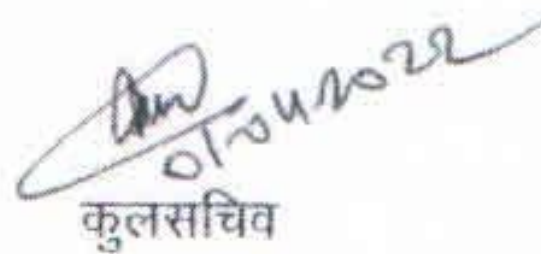 01/04/2022
कुलसचिव